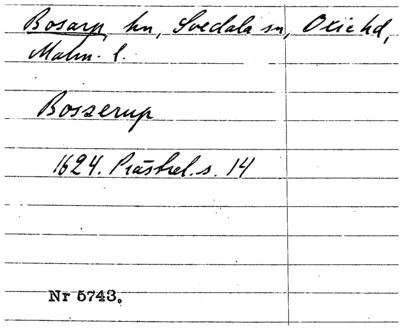 Bosarp, hn, Svedala sn, Oxie hd,
Malm. l.
Boszerup
1624. Prästrel. s. 14
Nr 5743.